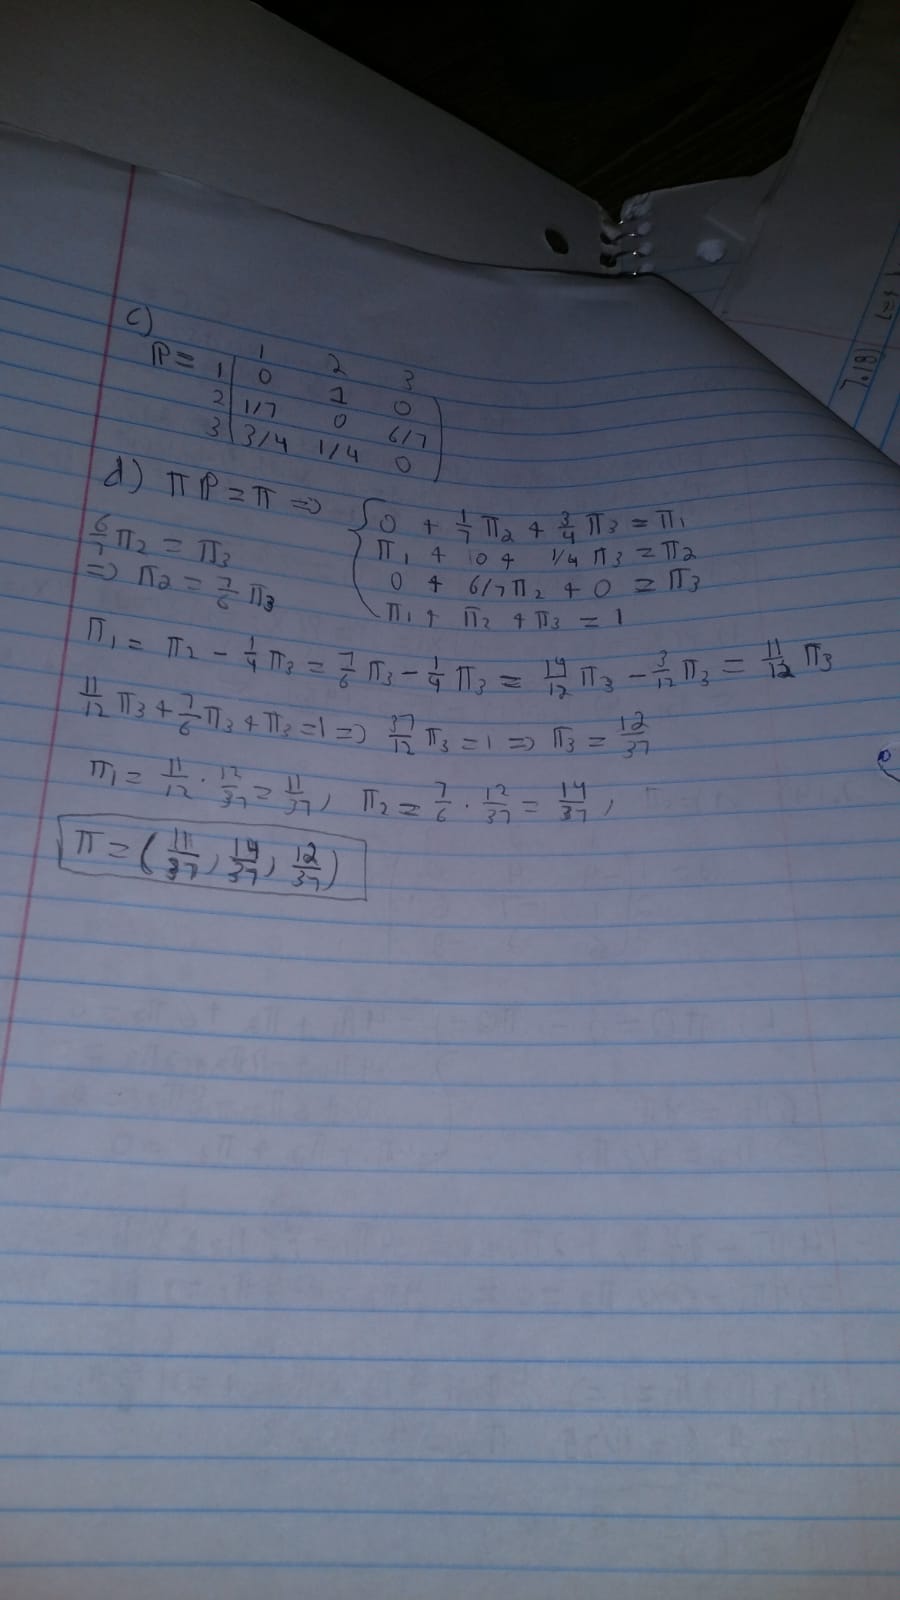 c)
1 2 3
ℙ = 1 0 1 0
2 1/7 0 6/7
3 3/4 1/4 0
d) πℙ = π ⇒ { 0 + 1/7 π2 + 3/4 π3 = π1
π1 + 0 + 1/4 π3 = π2
0 + 6/7 π2 + 0 = π3
π1 + π2 + π3 = 1
6/7 π2 = π3
⇒ π2 = 7/6 π3
π1 = π2 - 1/4 π3 = 7/6 π3 - 1/4 π3 = 14/12 π3 - 3/12 π3 = 11/12 π3
11/12 π3 + 7/6 π3 + π3 = 1 ⇒ 37/12 π3 = 1 ⇒ π3 = 12/37
π1 = 11/12 · 12/37 = 11/37, π2 = 7/6 · 12/37 = 14/37,
π = (11/37, 14/37, 12/37)
7.18)